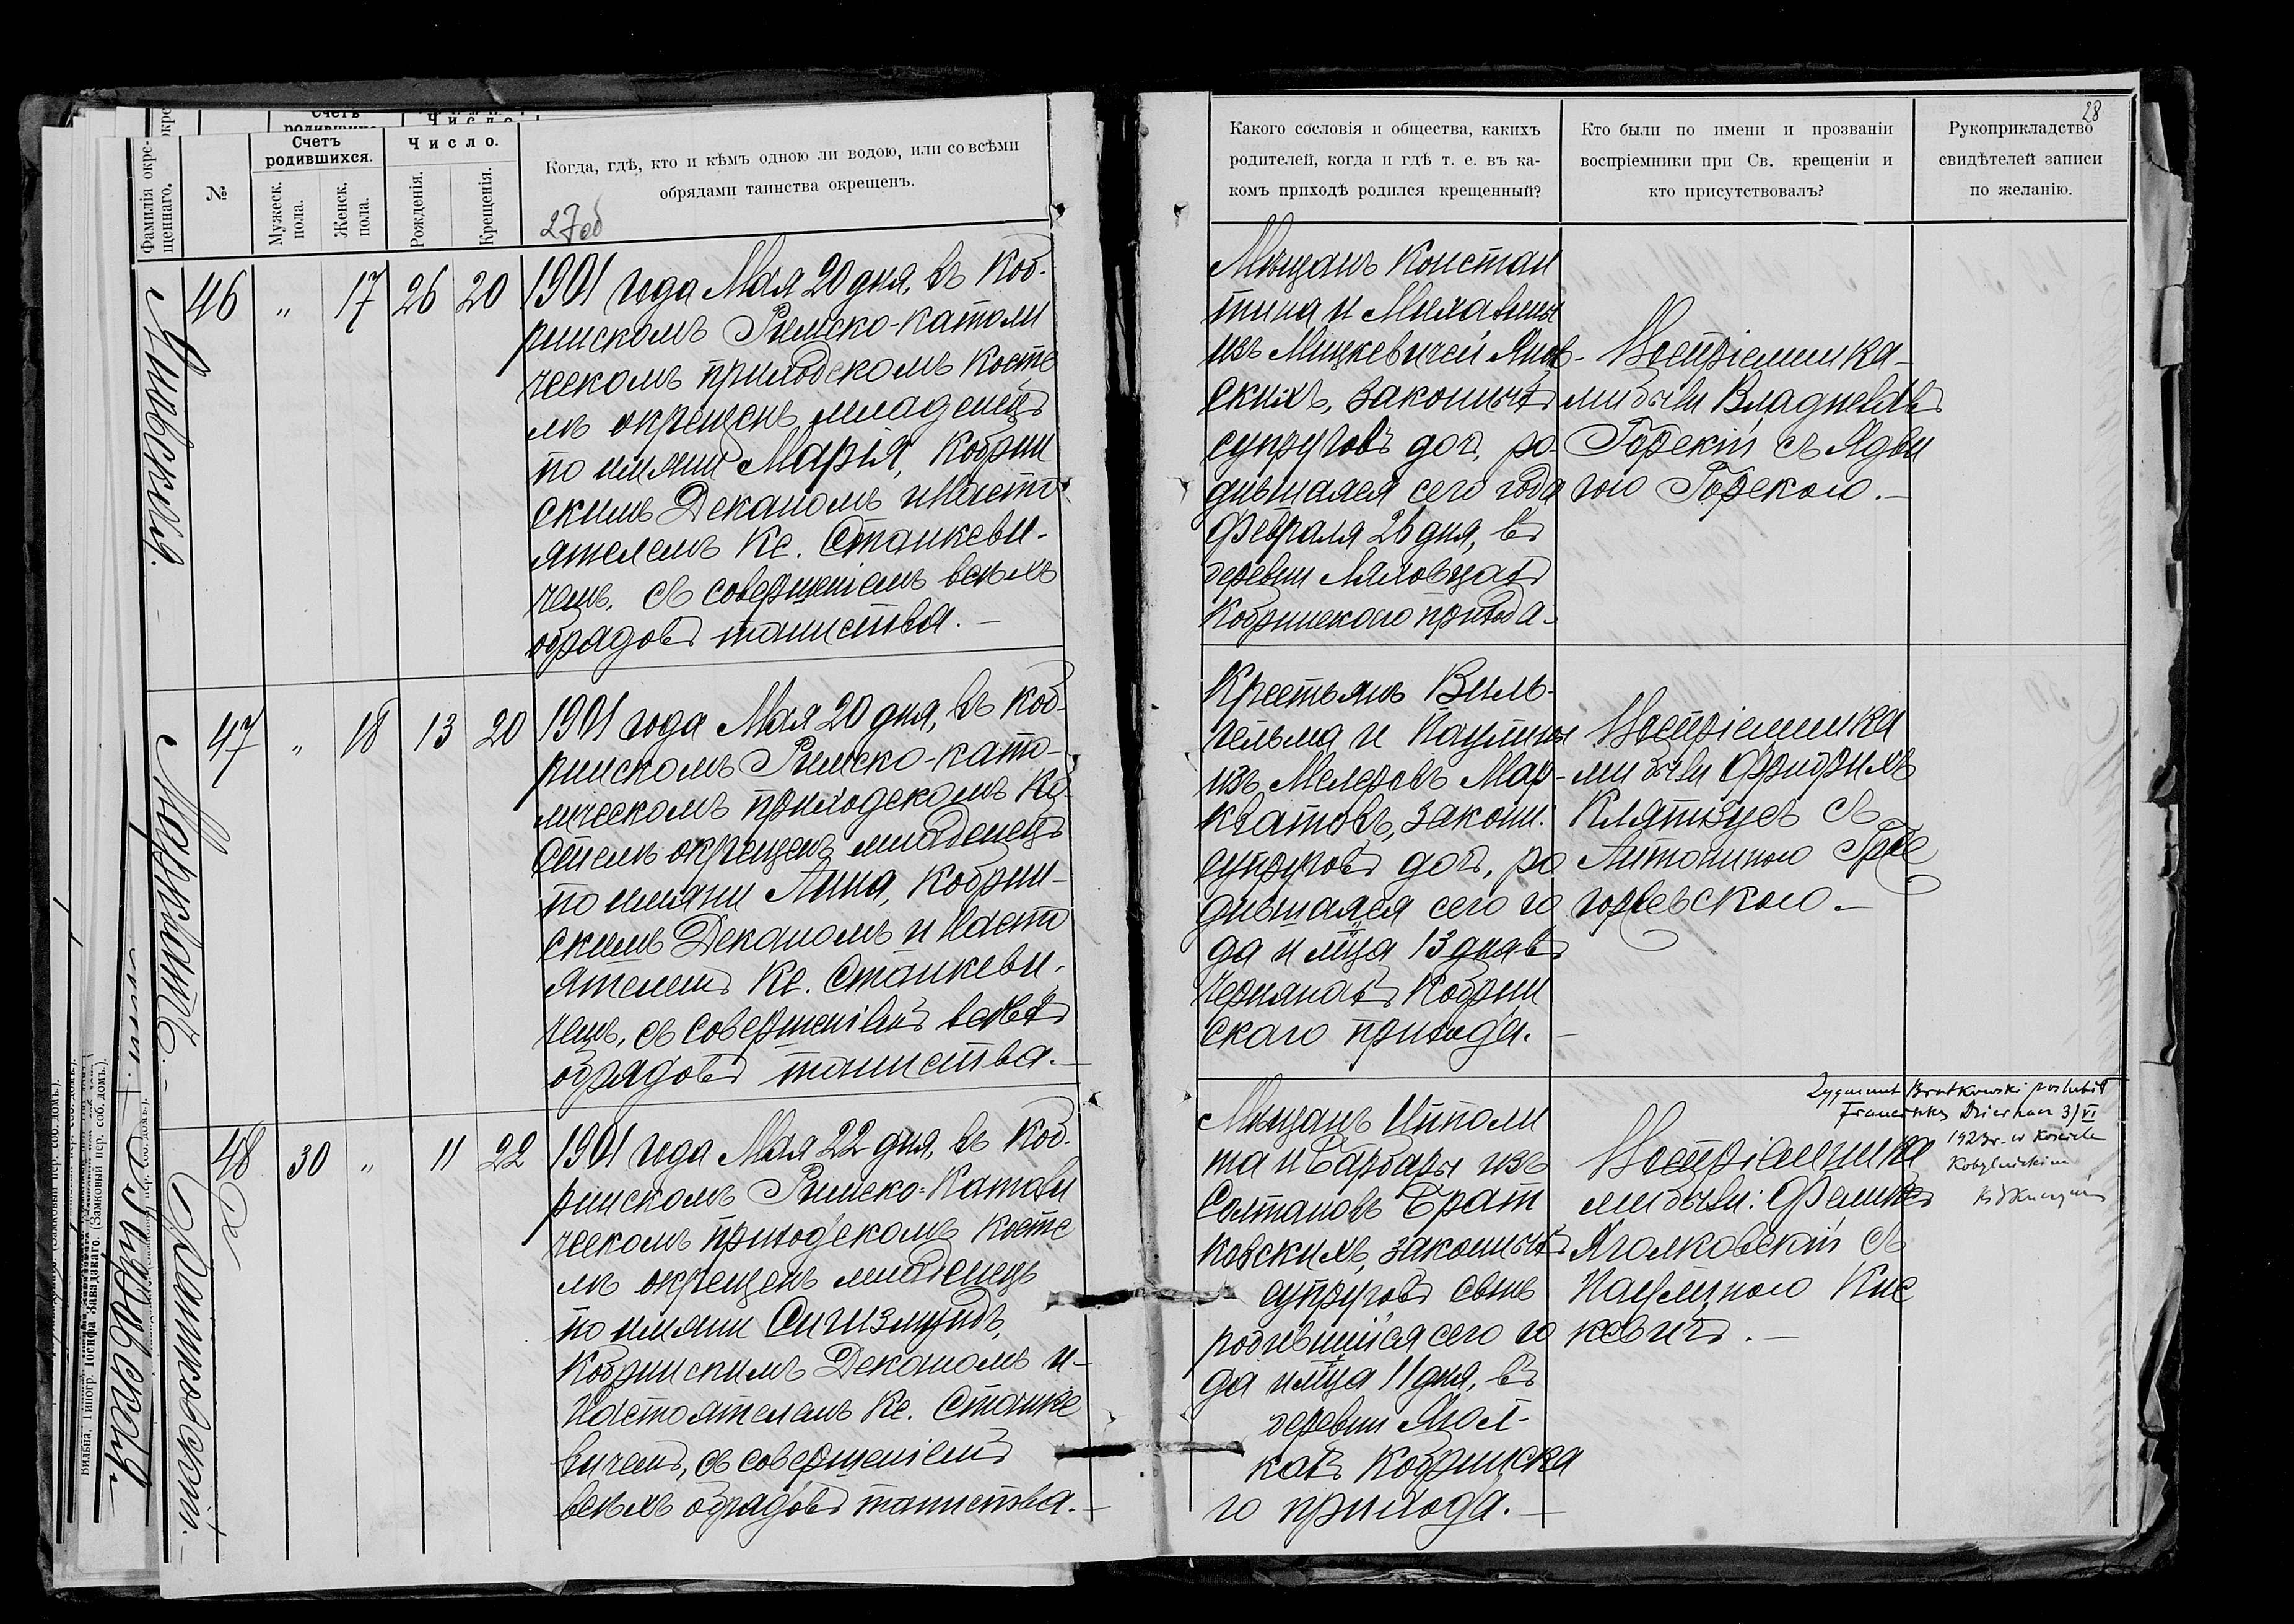 28
Фамилія окре-
щеннаго.
№
Счетъ
родившихся.
Мужеск.
пола.
Женск.
пола.
Число.
Рожденія.
Крещенія.
Когда, гдѣ, кто и кѣмъ одною ли водою, или со всѣми
обрядами таинства окрещенъ.
27об
Яновская.
46 " 17 26 20
1901 года Мая 20 дня, въ Коб-
ринскомъ Римско-католи
ческомъ приходскомъ косте
лѣ окрещенъ младенецъ
по имяни Марія, Кобрин
скимъ Деканомъ и Насто
ятелемъ Кс. Станкеви-
чемъ, съ совершеніемъ всѣхъ
обрядовъ таинства.
Маркватъ.
47 " 18 13 20
1901 года Мая 20 дня, въ Коб-
ринскомъ Римско-като-
лическомъ приходскомъ Ко-
стелѣ окрещенъ младенецъ
по имяни Анна, Кобрин-
скимъ Деканомъ и Насто
ятелемъ Кс. Станкеви-
чемъ, съ совершеніемъ всѣхъ
обрядовъ таинства.
Братковскій.
48 30 " 11 22
1901 года Мая 22 дня, въ Коб-
ринскомъ Римско=Католи
ческомъ приходскомъ косте
лѣ окрещенъ младенецъ
по имяни Сигизмундъ,
Кобринскимъ Деканомъ и-
Настоятелемъ Кс. Станке
вичемъ, съ совершеніемъ
всѣхъ обрядовъ таинства.
Какого сословія и общества, какихъ
родителей, когда и гдѣ т. е. въ ка-
комъ приходѣ родился крещенный?
Кто были по имени и прозваніи
воспріемники при Св. крещеніи и
кто присутствовалъ?
Рукоприкладство
свидѣтелей записи
по желанію.
Мѣщанъ Констан
тина и Михалины
изъ Мицкевичей Янов-
скихъ, законныхъ
супруговъ доч, ро-
дившаяся сего года
Февраля 26 дня, въ
деревни Ляховцахъ
Кобринскаго прихода.
Воспріемника-
ми были Владиславъ
Горскій съ Ядви
гою Горскою.
Крестьянъ Виль-
гельма и Паулины
изъ Мелеровъ Мар-
кватовъ, законн:
супруговъ доч, ро
дившаяся сего го
да и мца 13 дня въ
Чернянахъ Кобрин
скаго прихода.
Воспріемника
ми были Фридрихъ
съ
Антониною Гре
горевскою.
Мѣщанъ Ипполи
та и Барбары изъ
Солтановъ Брат
ковскихъ, законныхъ
супруговъ сынъ
родившійся сего го
да и мца 11 дня, въ
деревни Ягол-
кахъ Кобринска
го прихода.
Воспріемника
ми были: Феликсъ
Яголковскій съ
Паулиною Кис
кевичъ.
Zygmunt Bratkowski poślubił
3/VI
1923 r. w Kościele
Kobryńskim